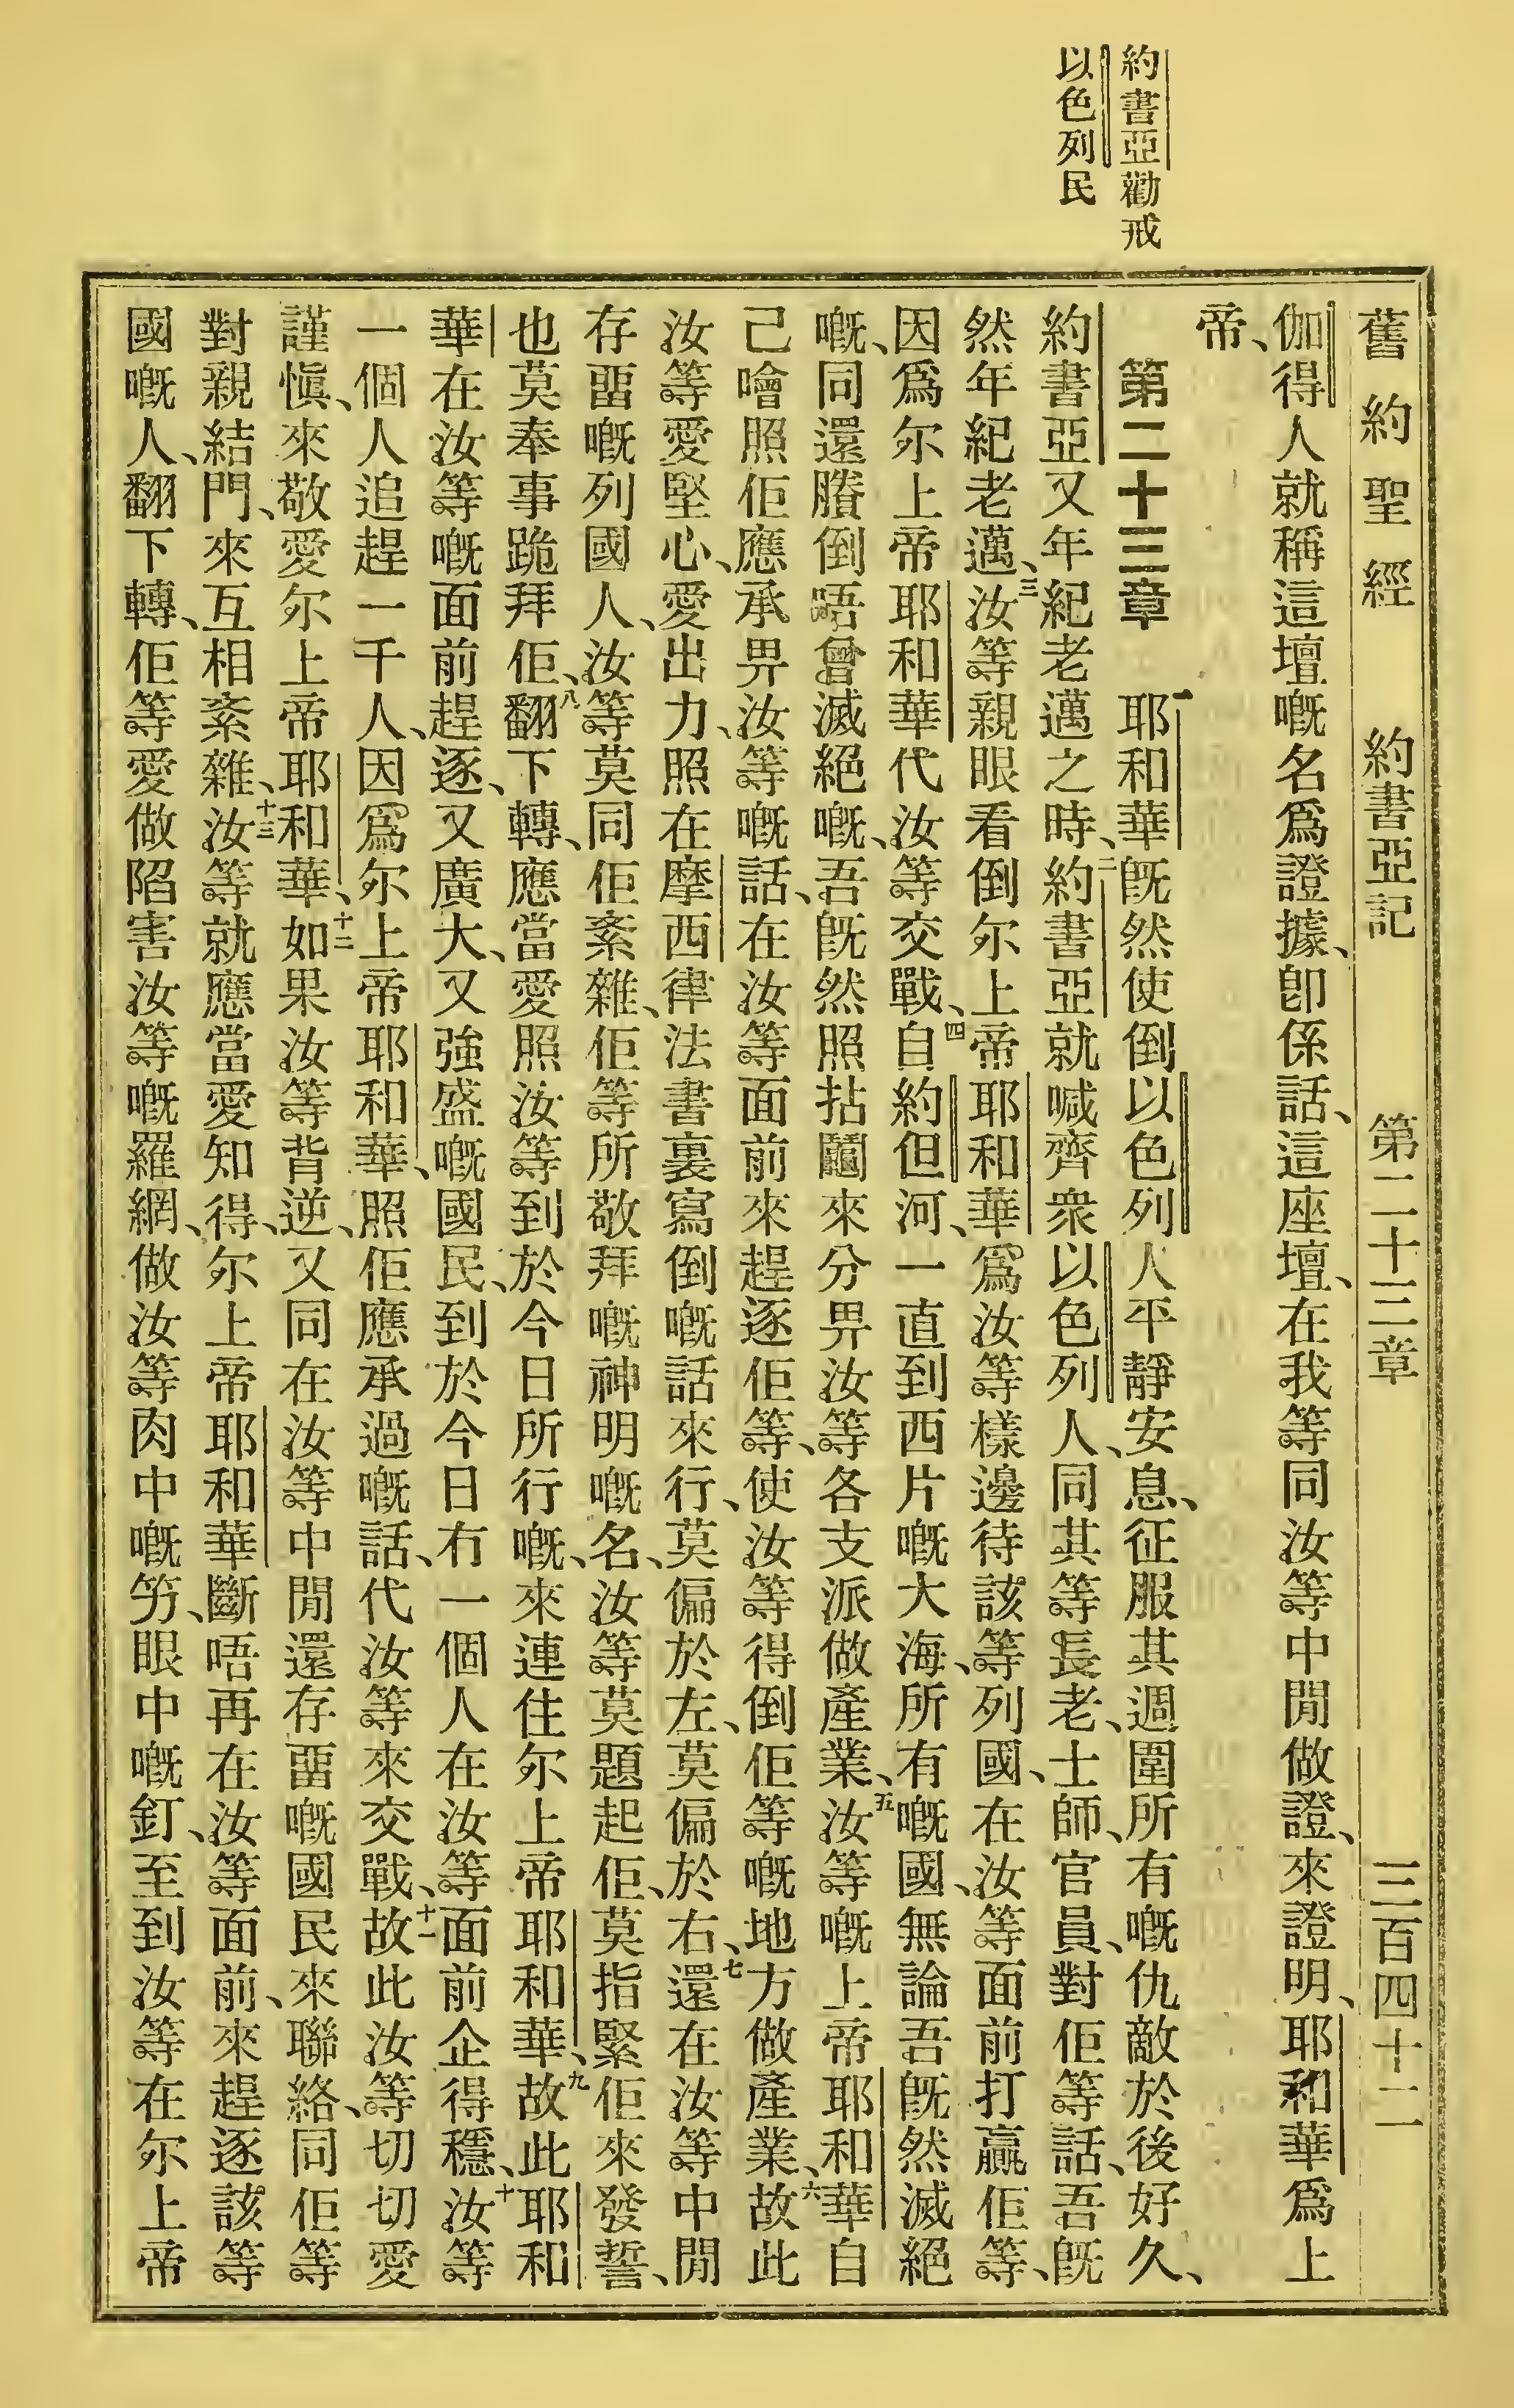 約書亞勸戒
以色列民
舊約聖經 約書亞記 第二十三章 三百四十二
伽得人就稱這壇嘅名爲證據、卽係話、這座壇、在我等同汝等中閒做證、來證明、耶和華爲上
帝、
第二十三章 一耶和華旣然使倒以色列人平靜安息、征服其週圍所有嘅仇敵於後好久、
約書亞又年紀老邁之時、二約書亞就喊齊衆以色列人、同其等長老、士師、官員、對佢等話、吾旣
然年紀老邁、三汝等親眼看倒尔上帝耶和華爲汝等樣邊待該等列國、在汝等面前打贏佢等、
因爲尔上帝耶和華代汝等交戰、四自約但河、一直到西片嘅大海、所有嘅國、無論吾旣然滅絕
嘅、同還賸倒唔曾滅絕嘅、吾旣然照拈鬮來分畀汝等各支派做產業、五汝等嘅上帝耶和華自
己噲照佢應承畀汝等嘅話、在汝等面前來趕逐佢等、使汝等得倒佢等嘅地方做產業、六故此
汝等愛堅心、愛出力、照在摩西律法書裏寫倒嘅話來行、莫偏於左、莫偏於右、七還在汝等中閒
存畱嘅列國人、汝等莫同佢紊雜、佢等所敬拜嘅神明嘅名、汝等莫題起佢、莫指緊佢來發誓、
也莫奉事跪拜佢、八翻下轉、應當愛照汝等到於今日所行嘅、來連住尔上帝耶和華、九故此耶和
華在汝等嘅面前趕逐、又廣大、又強盛嘅國民、到於今日冇一個人在汝等面前企得穩、十汝等
一個人追趕一千人、因爲尔上帝耶和華、照佢應承過嘅話、代汝等來交戰、十一故此汝等切切愛
謹愼、來敬愛尔上帝耶和華、十二如果汝等背逆、又同在汝等中閒還存畱嘅國民來聯絡、同佢等
對親結門、來互相紊雜、十三汝等就應當愛知得、尔上帝耶和華斷唔再在汝等面前、來趕逐該等
國嘅人、翻下轉、佢等愛做陷害汝等嘅羅網、做汝等肉中嘅竻、眼中嘅釘、至到汝等在尔上帝